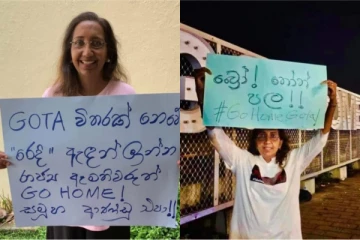 GOTA විතරක් නෙමේ
"රෙදි" ඇඳන් ඉන්න
රාජ්‍ය ඇමතිවරුන්
GO HOME!
සමූහ ආණ්ඩු එපා!!
යකෝ! තොපි
පල!!
#GoHomeGota!